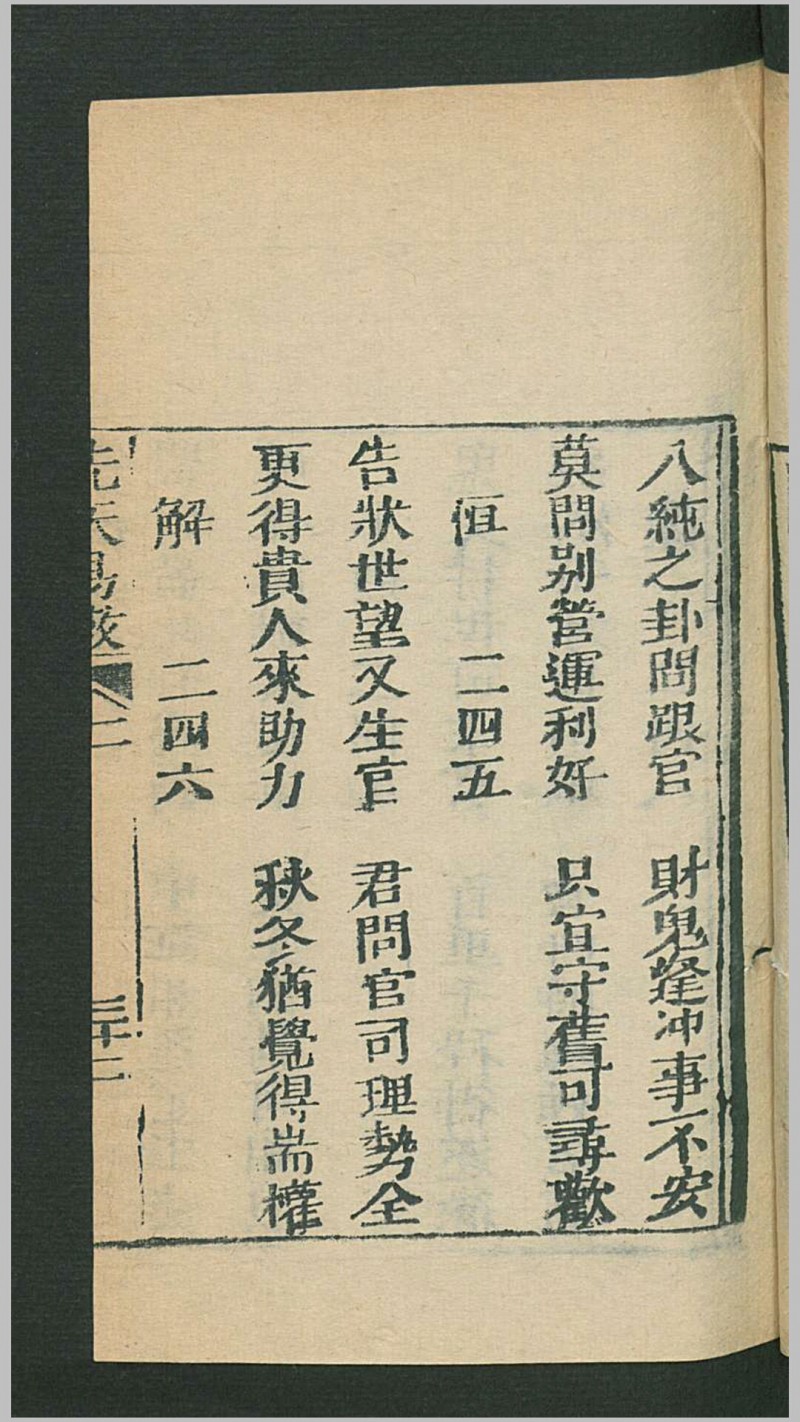 八純之卦問跟官　財鬼逢冲事不安
莫問别營運利好　只宜守舊可尋歡
恒　二四五
告狀世望又生官　君問官司理勢全
更得貴人來助力　秋冬猶覺得耑權
解　二四六
先天易数　二　三十二